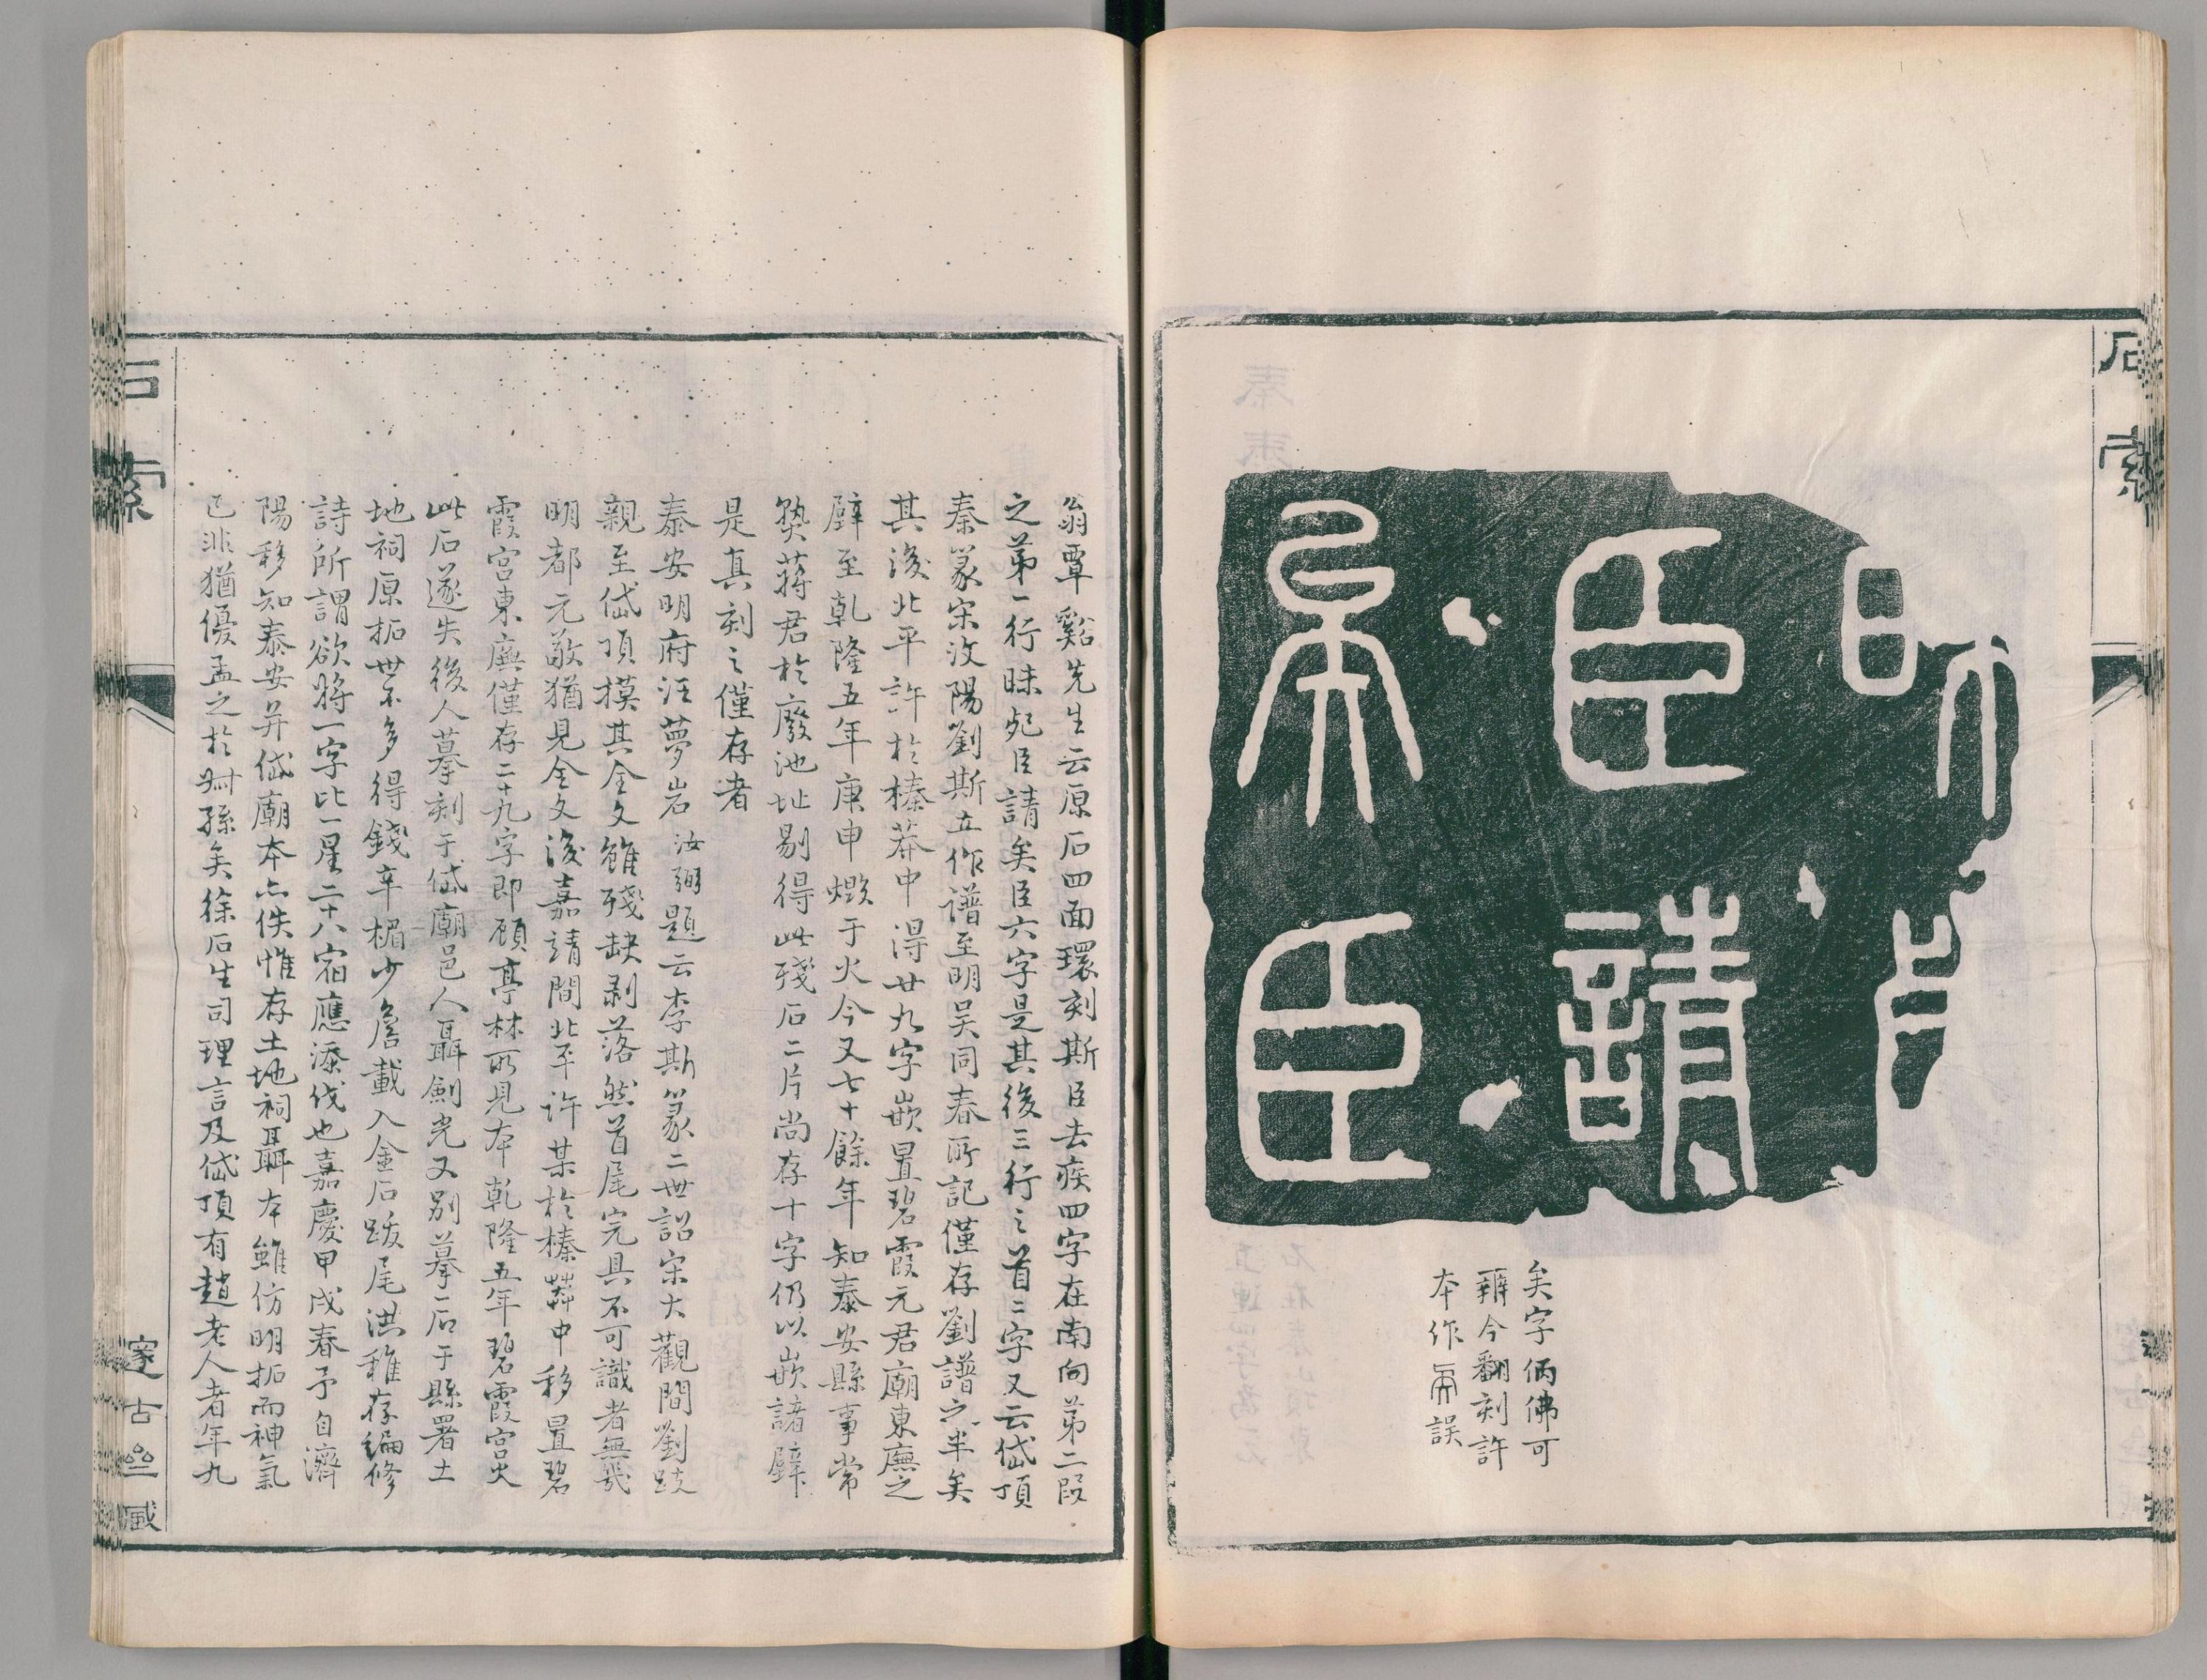 石索
昧死
臣請
矣臣
矣字俩佛可
辨今翻刻許
本作
誤
翁覃谿先生云原石四面環刻斯臣去疾四字在南向第二段
之第一行昧死臣請矣臣六字是其後三行之首二字又云岱頂
秦篆宋汶陽劉斯立作譜至明吴同春所記僅存劉譜之半矣
其後北平許於榛莽中得廿九字嵌置碧霞元君廟東廡之
壁至乾隆五年庚申燬于火今又七十餘年知泰安縣事常
熟蔣君於廢池址剔得此殘石二片尚存十字仍以嵌諸壁
是真刻之僅存者
泰安明府汪夢岩汝弼題云李斯篆二世詔宋大觀間劉跂
親至岱頂摸其全文雖殘缺剥落然首尾完具不可識者無幾
明都元敬猶見全文後嘉靖間北平許某於榛莽中移置碧
霞宫東廡僅存二十九字即顧亭林所見本乾隆五年碧霞宫火
此石遂失後人摹刻于岱廟邑人聶劍光又别摹一石于縣署土
地祠原拓世不多得錢辛楣少詹載入金石跋尾洪稚存編修
詩所謂欲將一字比一星二十八宿應添伐也嘉慶甲戌春予自濟
陽移知泰安并岱廟本亦佚惟存土地祠聶本雖仿明拓而神氣
已非猶優孟之於叔孫矣徐石生司理言及岱頂有趙老人者年九
石索
邃古𡴞臧